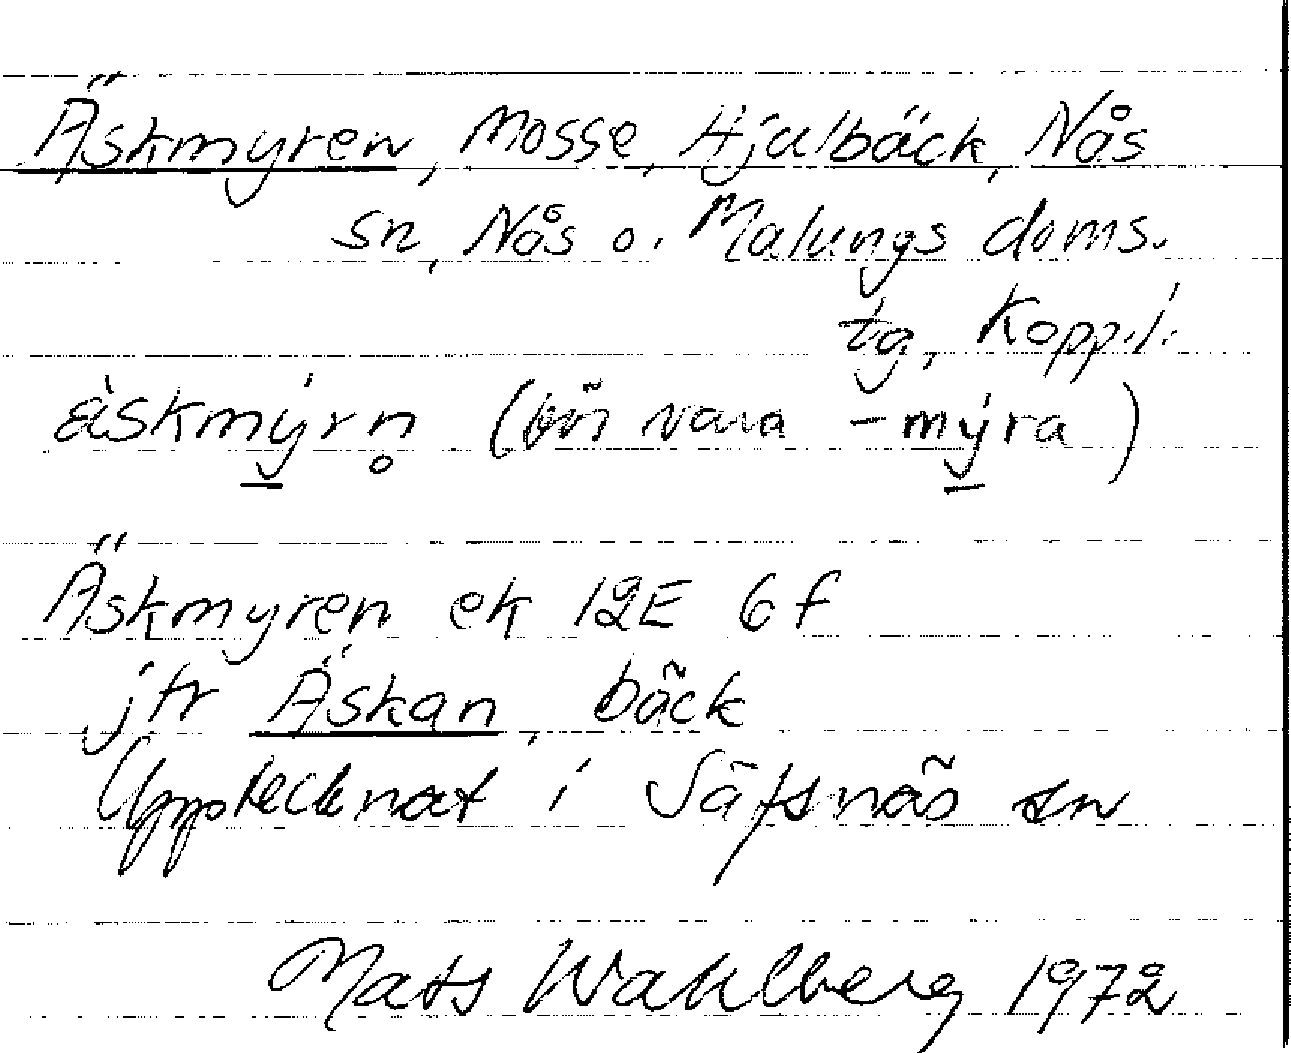 Äskmyren, Mosse, Hjulbäck, Nås
sn, Nås o. Malungs doms.
tg, Koppl.
äskmy̠rn̥ (bör vara -my̠ra)
Äskmyren ek 12E 6f
jfr Äskan, bäck
Upptecknat i Säfsnäs sn
Mats Wahlberg 1972